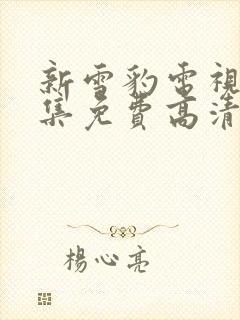 新雪豹電視
集免費高清
楊心亮